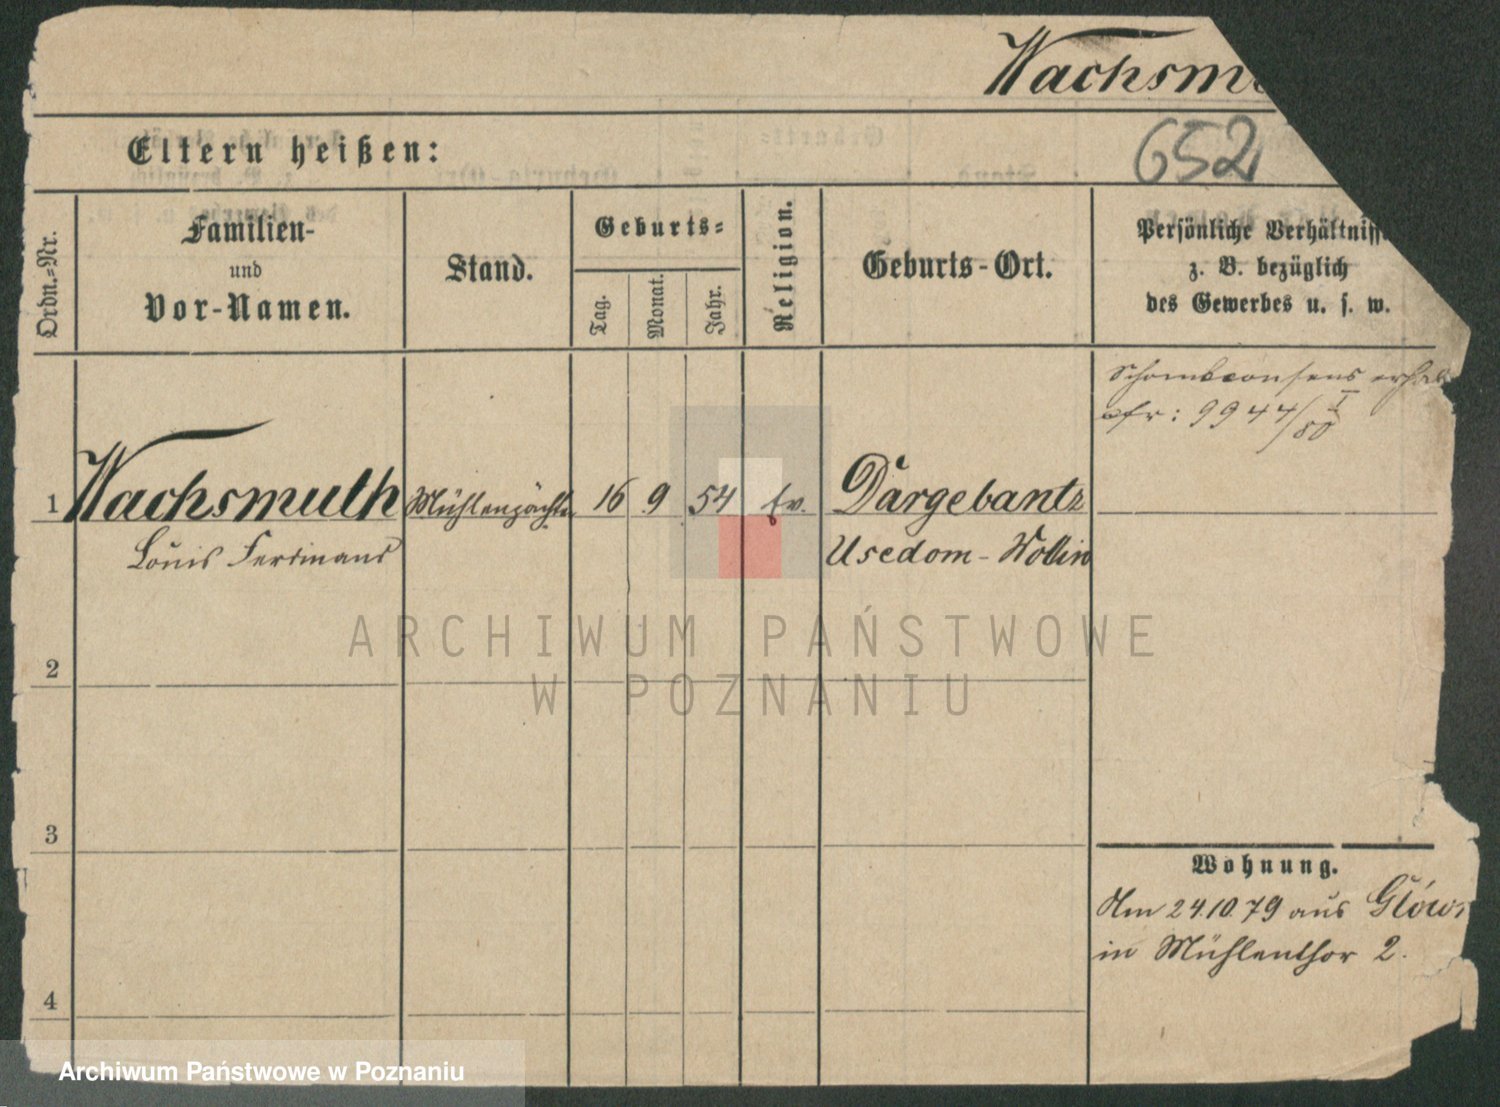 Wachsmu
652
Eltern heißen:
Ordn.=Nr.
Familien-
und
Vor-Namen.
Stand.
Geburts=
Tag.
Monat.
Jahr.
Religion.
Geburts-Ort.
Persönliche Verhältniss
z. B. bezüglich
des Gewerbes u. s. w.
Schankconsens erhal
cfr: 9944/I
80
1 Wachsmuth Mühlenpächter 16 9 54 Ev. Dargebantz
Louis Ferdinand Usedom-Wollin
ARCHIWUM PAŃSTWOWE
W POZNANIU
2
3
Wohnung.
Am 24.10.79 aus Glówn
in Mühlenthor 2.
4
Archiwum Państwowe w Poznaniu